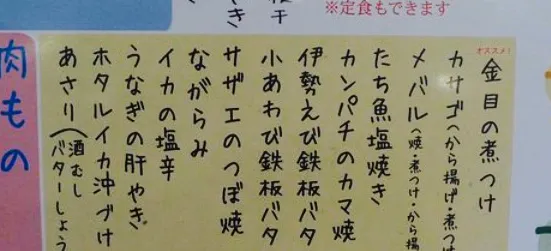 ※定食もできます
オススメ!
金目の煮つけ
カサゴ(から揚げ・煮つ
メバル(焼・煮つけ・から揚
たち魚塩焼き
カンパチのカマ焼
伊勢えび鉄板バタ
小あわび鉄板バタ
サザエのつぼ焼
ながらみ
イカの塩辛
うなぎの肝やき
ホタルイカ沖づけ
あさり(酒むし
バターしょう
肉もの